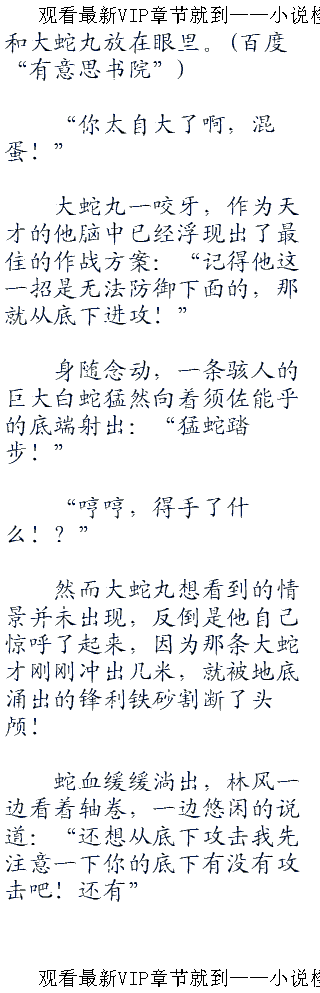 观看最新VIP章节就到——小说
和大蛇丸放在眼里。(百度
“有意思书院”)
“你太自大了啊，混
蛋！”
大蛇丸一咬牙，作为天
才的他脑中已经浮现出了最
佳的作战方案：“记得他这
一招是无法防御下面的，那
就从底下进攻！”
身随念动，一条骇人的
巨大白蛇猛然向着须佐能乎
的底端射出：“猛蛇踏
步！”
“哼哼，得手了什
么！？”
然而大蛇丸想看到的情
景并未出现，反倒是他自己
惊呼了起来，因为那条大蛇
才刚刚冲出几米，就被地底
涌出的锋利铁砂割断了头
颅！
蛇血缓缓淌出，林风一
边看着轴卷，一边悠闲的说
道：“还想从底下攻击我先
注意一下你的底下有没有攻
击吧！还有”
观看最新VIP章节就到——小说